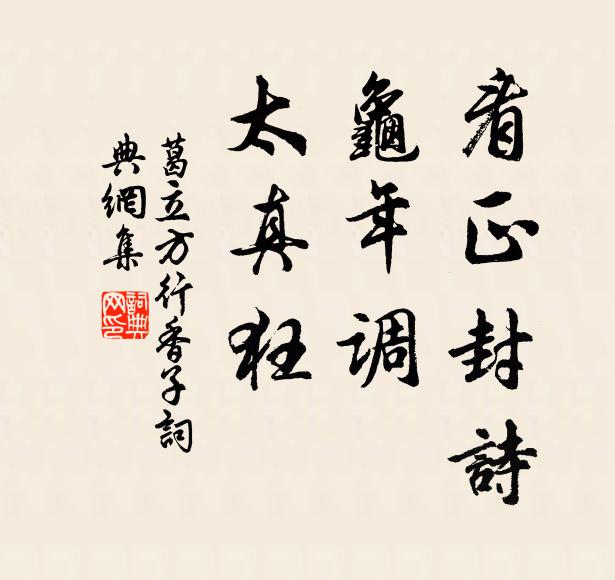 看正封詩
龜年调
太真狂
葛立方行香子詞
典網集
詞典网印